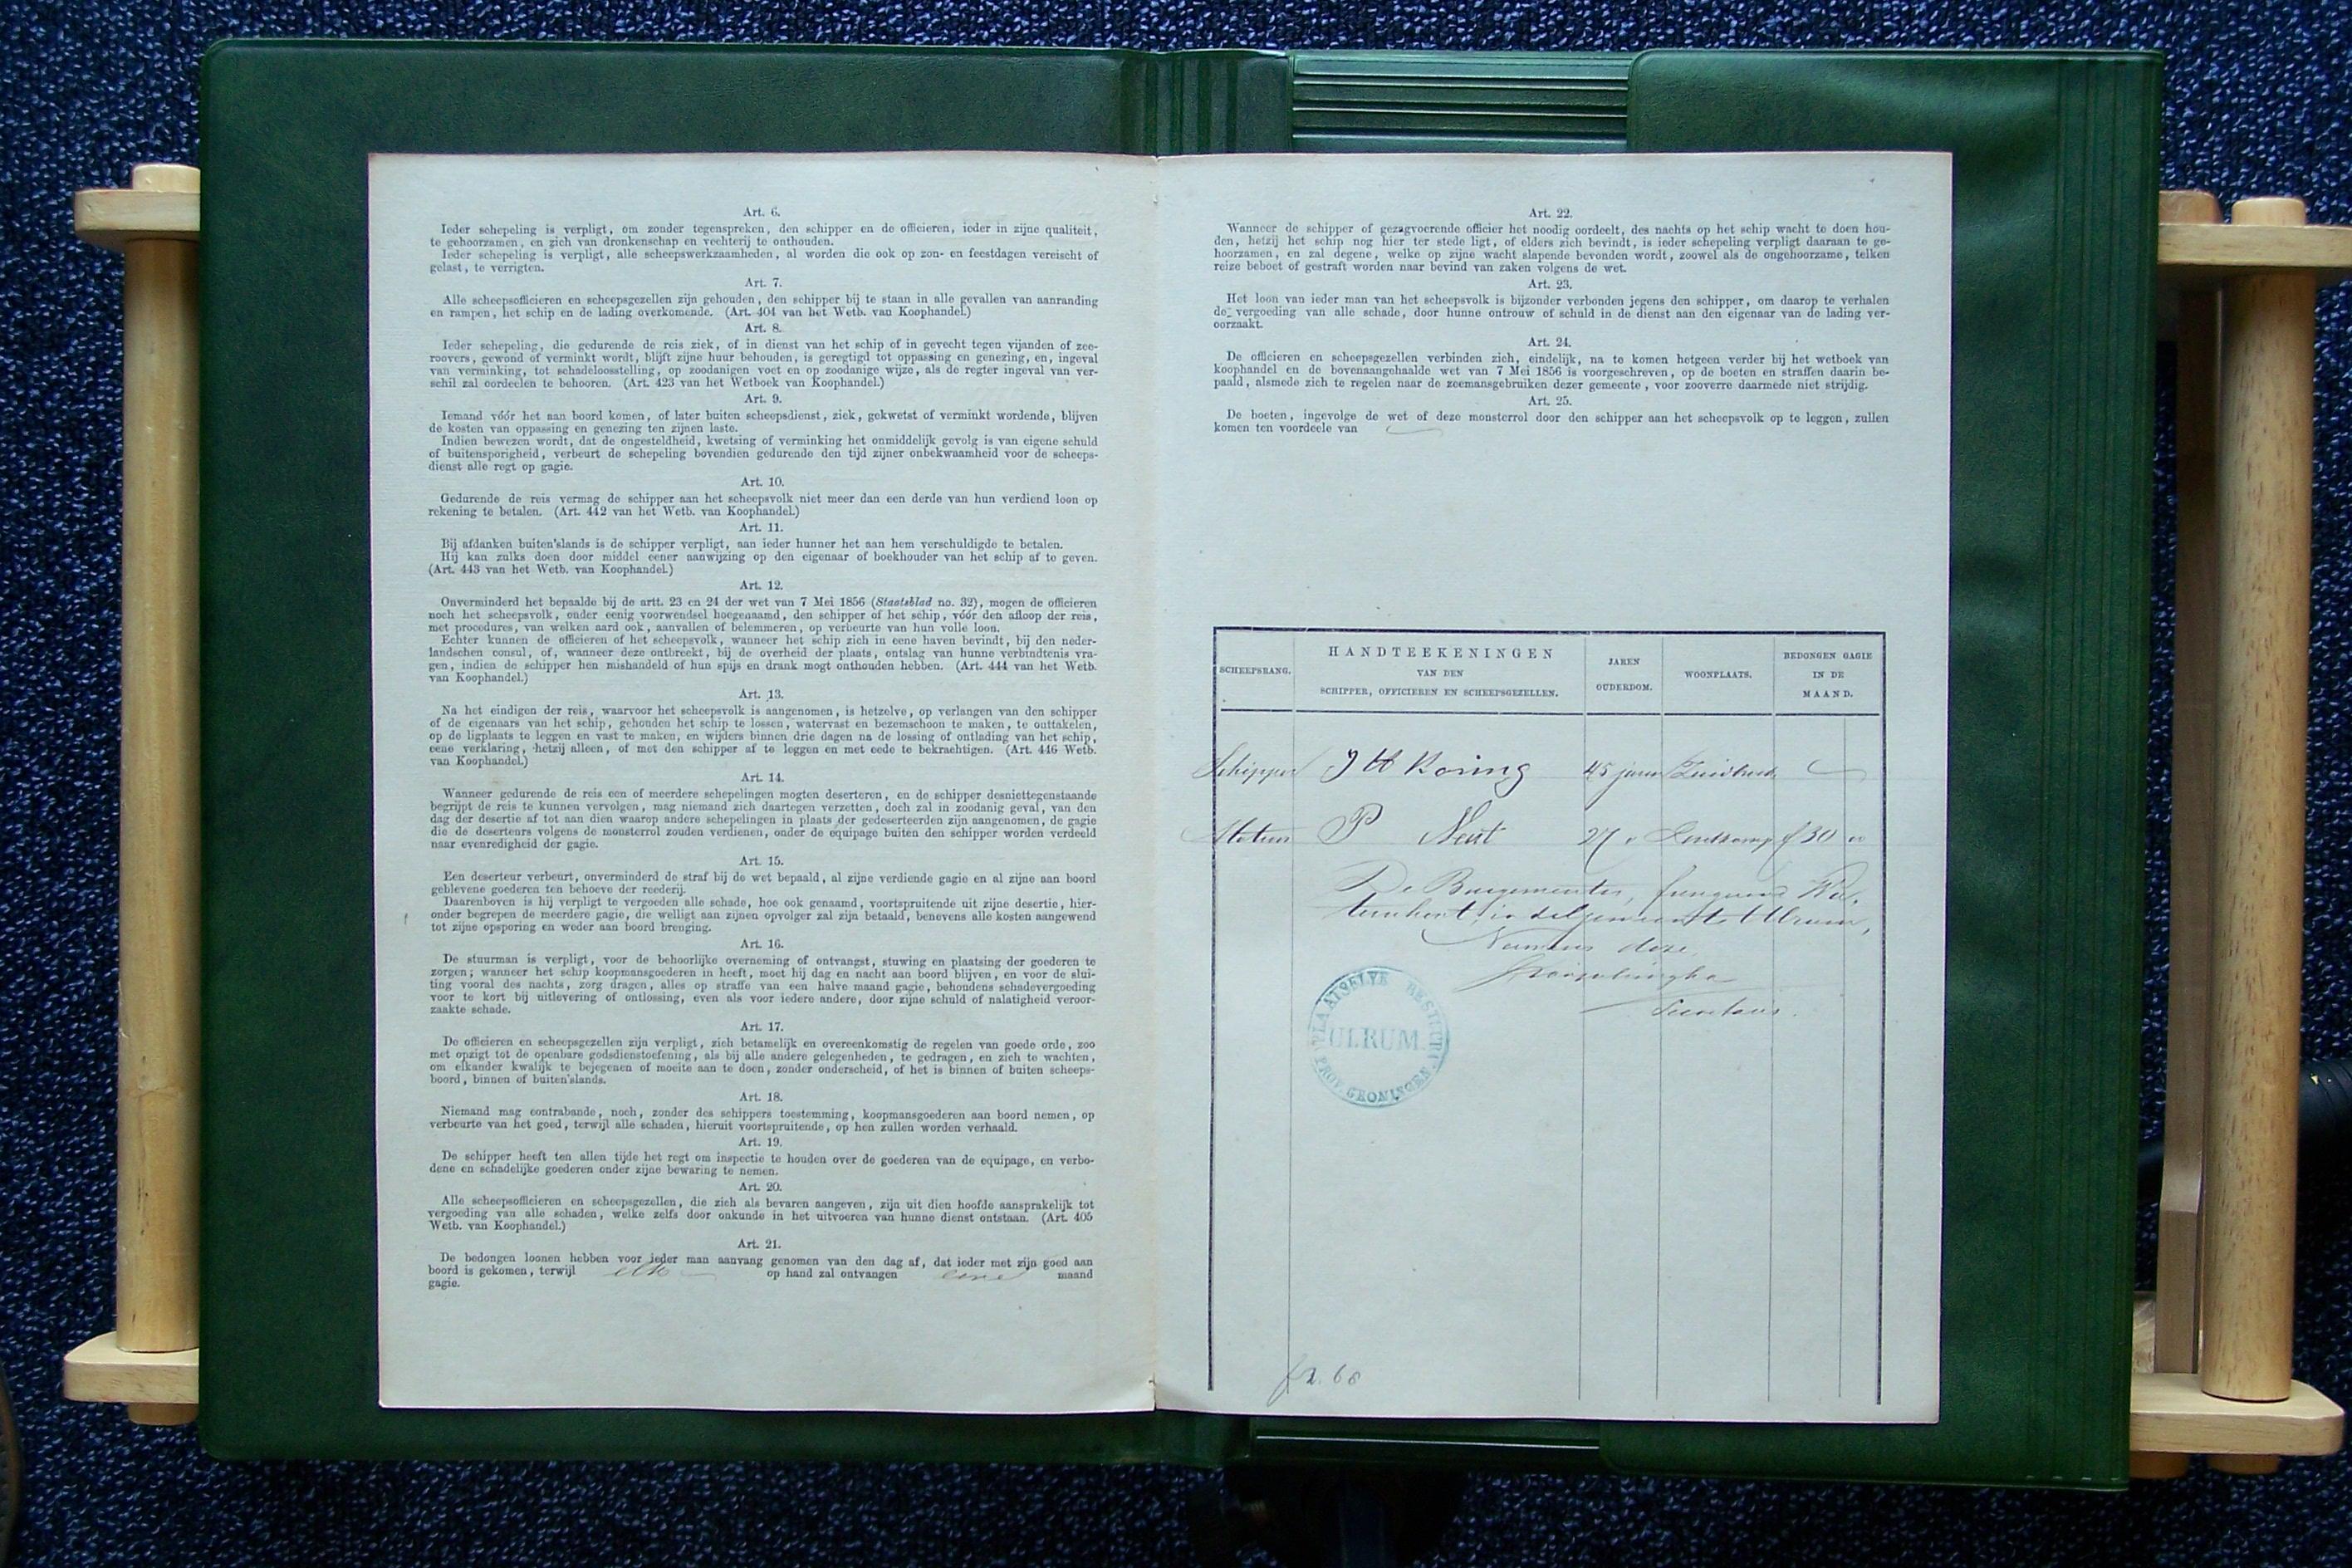 Art. 6.
Ieder schepeling is verpligt, om zonder tegenspreken, den schipper en de officieren, ieder in zijne qualiteit,
te gehoorzamen, en zich van dronkenschap en vechterij te onthouden.
Ieder schepeling is verpligt, alle scheepswerkzaamheden, al worden die ook op zon- en feestdagen vereischt of
gelast, te verrigten.
Art. 7.
Alle scheepsofficieren en scheepsgezellen zijn gehouden, den schipper bij te staan in alle gevallen van aanranding
en rampen, het schip en de lading overkomende. (Art. 404 van het Wetb. van Koophandel.)
Art. 8.
Ieder schepeling, die gedurende de reis ziek, of in dienst van het schip of in gevecht tegen vijanden of zee-
roovers, gewond of verminkt wordt, blijft zijne huur behouden, is geregtigd tot oppassing en genezing, en, ingeval
van verminking, tot schadeloosstelling, op zoodanigen voet en op zoodanige wijze, als de regter ingeval van ver-
schil zal oordeelen te behooren. (Art. 423 van het Wetboek van Koophandel.)
Art. 9.
Iemand vóór het aan boord komen, of later buiten scheepsdienst, ziek, gekwetst of verminkt wordende, blijven
de kosten van oppassing en genezing ten zijnen laste.
Indien bewezen wordt, dat de ongesteldheid, kwetsing of verminking het onmiddelijk gevolg is van eigene schuld
of buitensporigheid, verbeurt de schepeling bovendien gedurende den tijd zijner onbekwaamheid voor de scheeps-
dienst alle regt op gagie.
Art. 10.
Gedurende de reis vermag de schipper aan het scheepsvolk niet meer dan een derde van hun verdiend loon op
rekening te betalen. (Art. 442 van het Wetb. van Koophandel.)
Art. 11.
Bij afdanken buiten'slands is de schipper verpligt, aan ieder hunner het aan hem verschuldigde te betalen.
Hij kan zulks doen door middel eener aanwijzing op den eigenaar of boekhouder van het schip af te geven.
(Art. 443 van het Wetb. van Koophandel.)
Art. 12.
Onverminderd het bepaalde bij de artt. 23 en 24 der wet van 7 Mei 1856 (Staatsblad no. 32), mogen de officieren
noch het scheepsvolk, onder eenig voorwendsel hoegenaamd, den schipper of het schip, vóór den afloop der reis,
met procedures, van welken aard ook, aanvallen of belemmeren, op verbeurte van hun volle loon.
Echter kunnen de officieren of het scheepsvolk, wanneer het schip zich in eene haven bevindt, bij den neder-
landschen consul, of, wanneer deze ontbreekt, bij de overheid der plaats, ontslag van hunne verbindtenis vra-
gen, indien de schipper hen mishandeld of hun spijs en drank mogt onthouden hebben. (Art. 444 van het Wetb.
van Koophandel.)
Art. 13.
Na het eindigen der reis, waarvoor het scheepsvolk is aangenomen, is hetzelve, op verlangen van den schipper
of de eigenaars van het schip, gehouden het schip te lossen, watervast en bezemschoon te maken, te onttakelen,
op de ligplaats te leggen en vast te maken, en wijders binnen drie dagen na de lossing of ontlading van het schip,
eene verklaring, hetzij alleen, of met den schipper af te leggen en met eede te bekrachtigen. (Art. 446 Wetb.
van Koophandel.)
Art. 14.
Wanneer gedurende de reis een of meerdere schepelingen mogten deserteren, en de schipper desniettegenstaande
begrijpt de reis te kunnen vervolgen, mag niemand zich daartegen verzetten, doch zal in zoodanig geval, van den
dag der desertie af tot aan dien waarop andere schepelingen in plaats der gedeserteerden zijn aangenomen, de gagie
die de deserteurs volgens de monsterrol zouden verdienen, onder de equipage buiten den schipper worden verdeeld
naar evenredigheid der gagie.
Art. 15.
Een deserteur verbeurt, onverminderd de straf bij de wet bepaald, al zijne verdiende gagie en al zijne aan boord
geblevene goederen ten behoeve der reederij.
Daarenboven is hij verpligt te vergoeden alle schade, hoe ook genaamd, voortspruitende uit zijne desertie, hier-
onder begrepen de meerdere gagie, die welligt aan zijnen opvolger zal zijn betaald, benevens alle kosten aangewend
tot zijne opsporing en weder aan boord brenging.
Art. 16.
De stuurman is verpligt, voor de behoorlijke overneming of ontvangst, stuwing en plaatsing der goederen te
zorgen; wanneer het schip koopmansgoederen in heeft, moet hij dag en nacht aan boord blijven, en voor de slui-
ting vooral des nachts, zorg dragen, alles op straffe van een halve maand gagie, behoudens schadevergoeding
voor te kort bij uitlevering of ontlossing, even als voor iedere andere, door zijne schuld of nalatigheid veroor-
zaakte schade.
Art. 17.
De officieren en scheepsgezellen zijn verpligt, zich betamelijk en overeenkomstig de regelen van goede orde, zoo
met opzigt tot de openbare godsdienstoefening, als bij alle andere gelegenheden, te gedragen, en zich te wachten,
om elkander kwalijk te bejegenen of moeite aan te doen, zonder onderscheid, of het is binnen of buiten scheeps-
boord, binnen of buiten'slands.
Art. 18.
Niemand mag contrabande, noch, zonder des schippers toestemming, koopmansgoederen aan boord nemen, op
verbeurte van het goed, terwijl alle schaden, hieruit voortspruitende, op hen zullen worden verhaald.
Art. 19.
De schipper heeft ten allen tijde het regt om inspectie te houden over de goederen van de equipage, en verbo-
dene en schadelijke goederen onder zijne bewaring te nemen.
Art. 20.
Alle scheepsofficieren en scheepsgezellen, die zich als bevaren aangeven, zijn uit dien hoofde aansprakelijk tot
vergoeding van alle schaden, welke zelfs door onkunde in het uitvoeren van hunne dienst ontstaan. (Art. 405
Wetb. van Koophandel.)
Art. 21.
De bedongen loonen hebben voor ieder man aanvang genomen van den dag af, dat ieder met zijn goed aan
boord is gekomen, terwijl elk op hand zal ontvangen eene maand
gagie.
Art. 22.
Wanneer de schipper of gezagvoerende officier het noodig oordeelt, des nachts op het schip wacht te doen hou-
den, hetzij het schip nog hier ter stede ligt, of elders zich bevindt, is ieder schepeling verpligt daaraan te ge-
hoorzamen, en zal degene, welke op zijne wacht slapende bevonden wordt, zoowel als de ongehoorzame, telken
reize beboet of gestraft worden naar bevind van zaken volgens de wet.
Art. 23.
Het loon van ieder man van het scheepsvolk is bijzonder verbonden jegens den schipper, om daarop te verhalen
de vergoeding van alle schade, door hunne ontrouw of schuld in de dienst aan den eigenaar van de lading ver-
oorzaakt.
Art. 24.
De officieren en scheepsgezellen verbinden zich, eindelijk, na te komen hetgeen verder bij het wetboek van
koophandel en de bovenaangehaalde wet van 7 Mei 1856 is voorgeschreven, op de boeten en straffen daarin be-
paald, alsmede zich te regelen naar de zeemansgebruiken dezer gemeente, voor zooverre daarmede niet strijdig.
Art. 25.
De boeten, ingevolge de wet of deze monsterrol door den schipper aan het scheepsvolk op te leggen, zullen
komen ten voordeele van
SCHEEPSRANG.
HANDTEEKENINGEN
VAN DEN
SCHIPPER, OFFICIEREN EN SCHEEPSGEZELLEN.
JAREN
OUDERDOM.
WOONPLAATS.
BEDONGEN GAGIE
IN DE
MAAND.
Schipper J H Koning 45 jaren
P 27 f 30
De Burgemeester, fungeerend Wa-
terschout, in de gemeente Ulrum,
Namens deze,
Secretaris.
PLAATSELYK BESTUUR
ULRUM
PROV. GRONINGEN
f 2.66